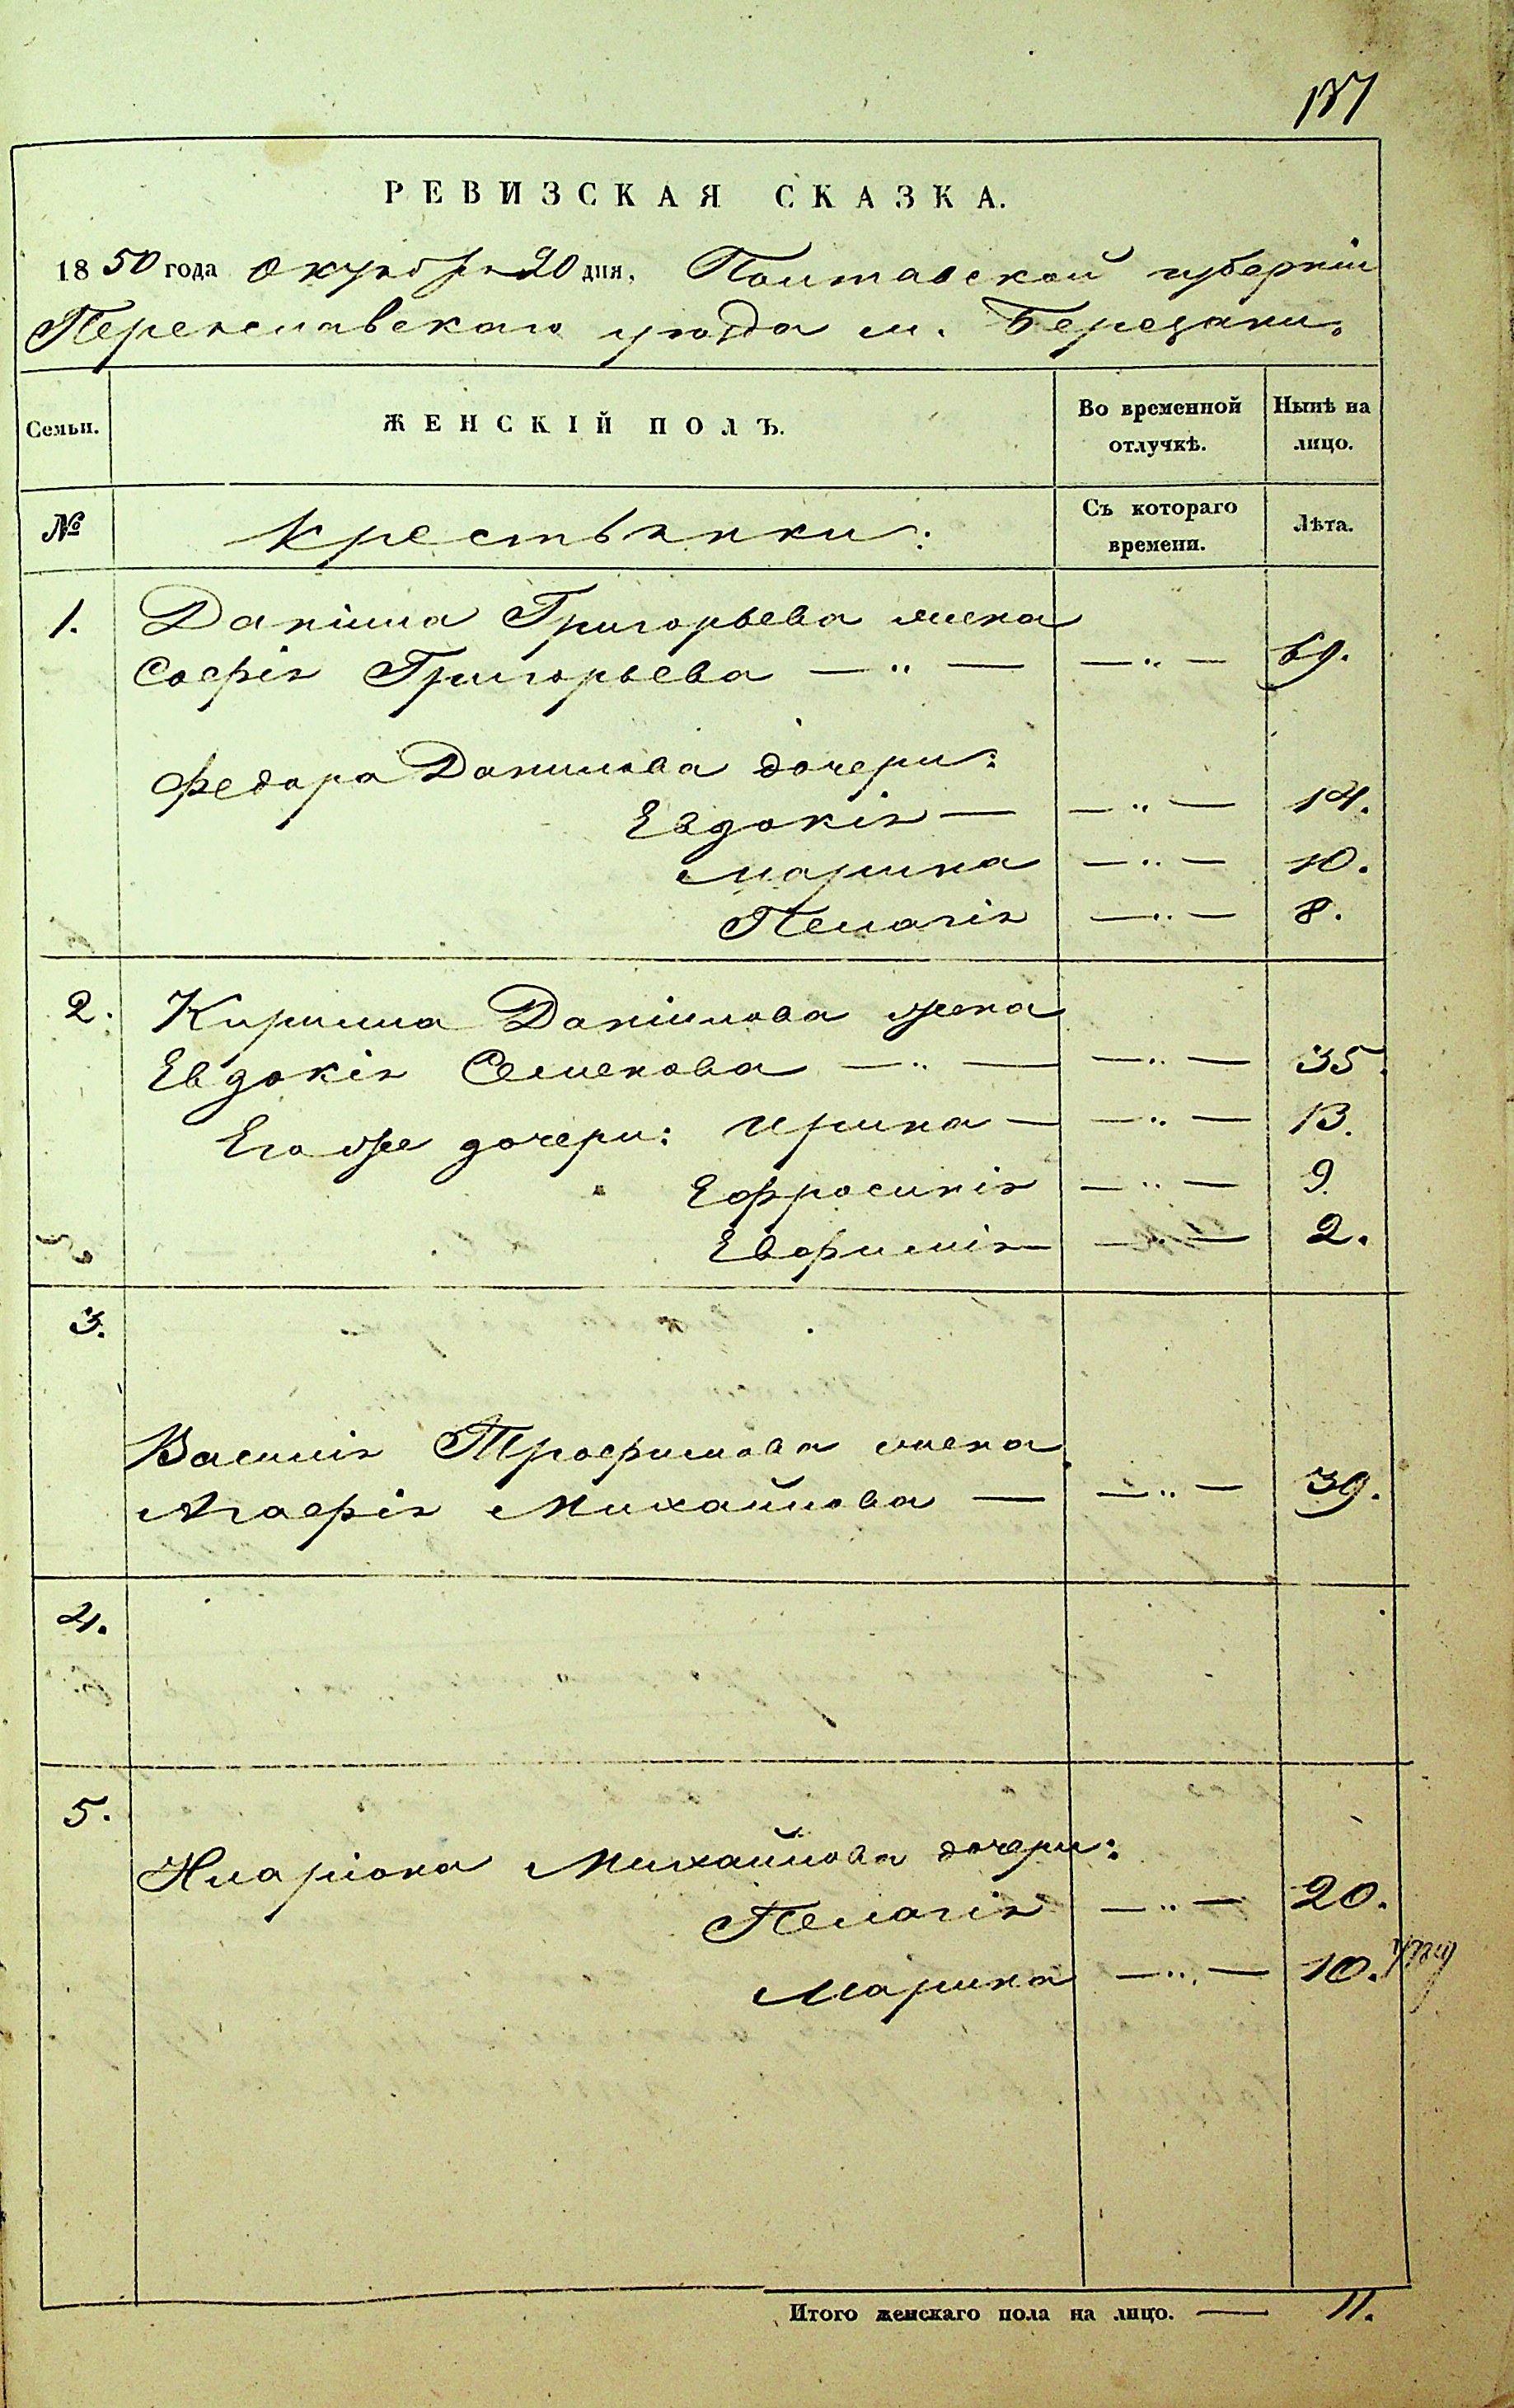 137
РЕВИЗСКАЯ СКАЗКА.
1850 года Октября 20 дня, Полтавской губерніи
Переяславскаго уѣзда м. Березани.
Семьи. ЖЕНСКІЙ ПОЛЪ. Во временной отлучкѣ. Нынѣ на лицо.
№ Крестьянки: Съ котораго времени. Лѣта.
1. Даніила Григорьева жена
Софія Григорьева — " — — " — 69.
Федора Данилова дочери:
Евдокія — — " — 14.
Марина — " — 10.
Пелагія — " — 8.
2. Кирилла Даніилова жена
Евдокія Семенова — " — — " — 35.
Его же дочери: Ирина — — " — 13.
Ефросинія — " — 9.
Евфимія — " — 2.
3.
Василія Трофимова жена
Агафія Михайлова — — " — 39.
4.
5.
Иларіона Михайлова дочери:
Пелагія — " — 20.
Марина — " — 10.
Итого женскаго пола на лицо. — 11.